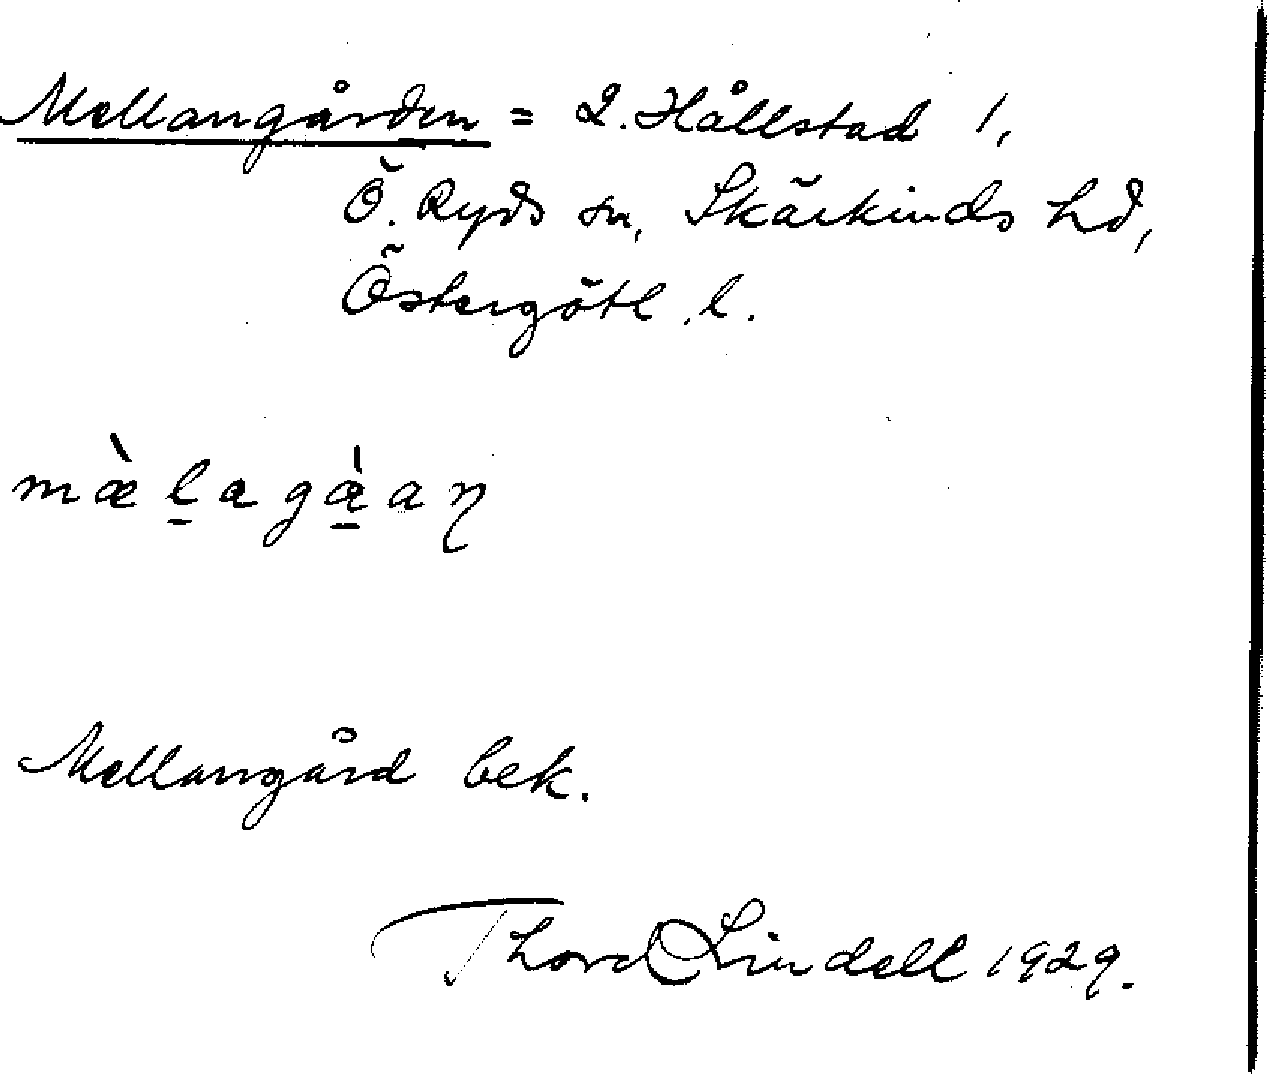 Mellangården = 2. Hållstad 1,
Ö. Ryds sn, Skärkinds hd,
Östergötl. l.
mæ̀l̠agà̠aŋ
Mellangård bek.
Thord Lindell 1929.